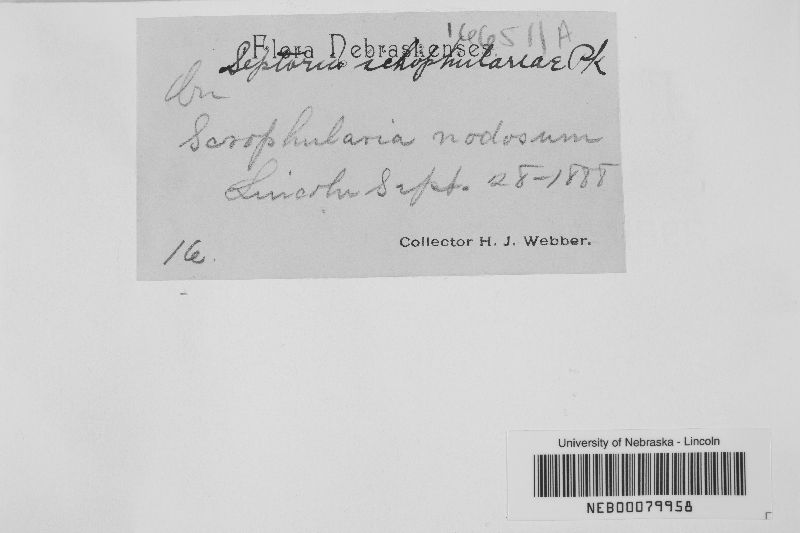 166511A
Flora Nebraskensis.
Septoria scrophulariae Pk
On
Scrophularia nodosum
Lincoln Sept. 28-1888
Collector H. J. Webber.
16.
University of Nebraska - Lincoln
NEB00079958